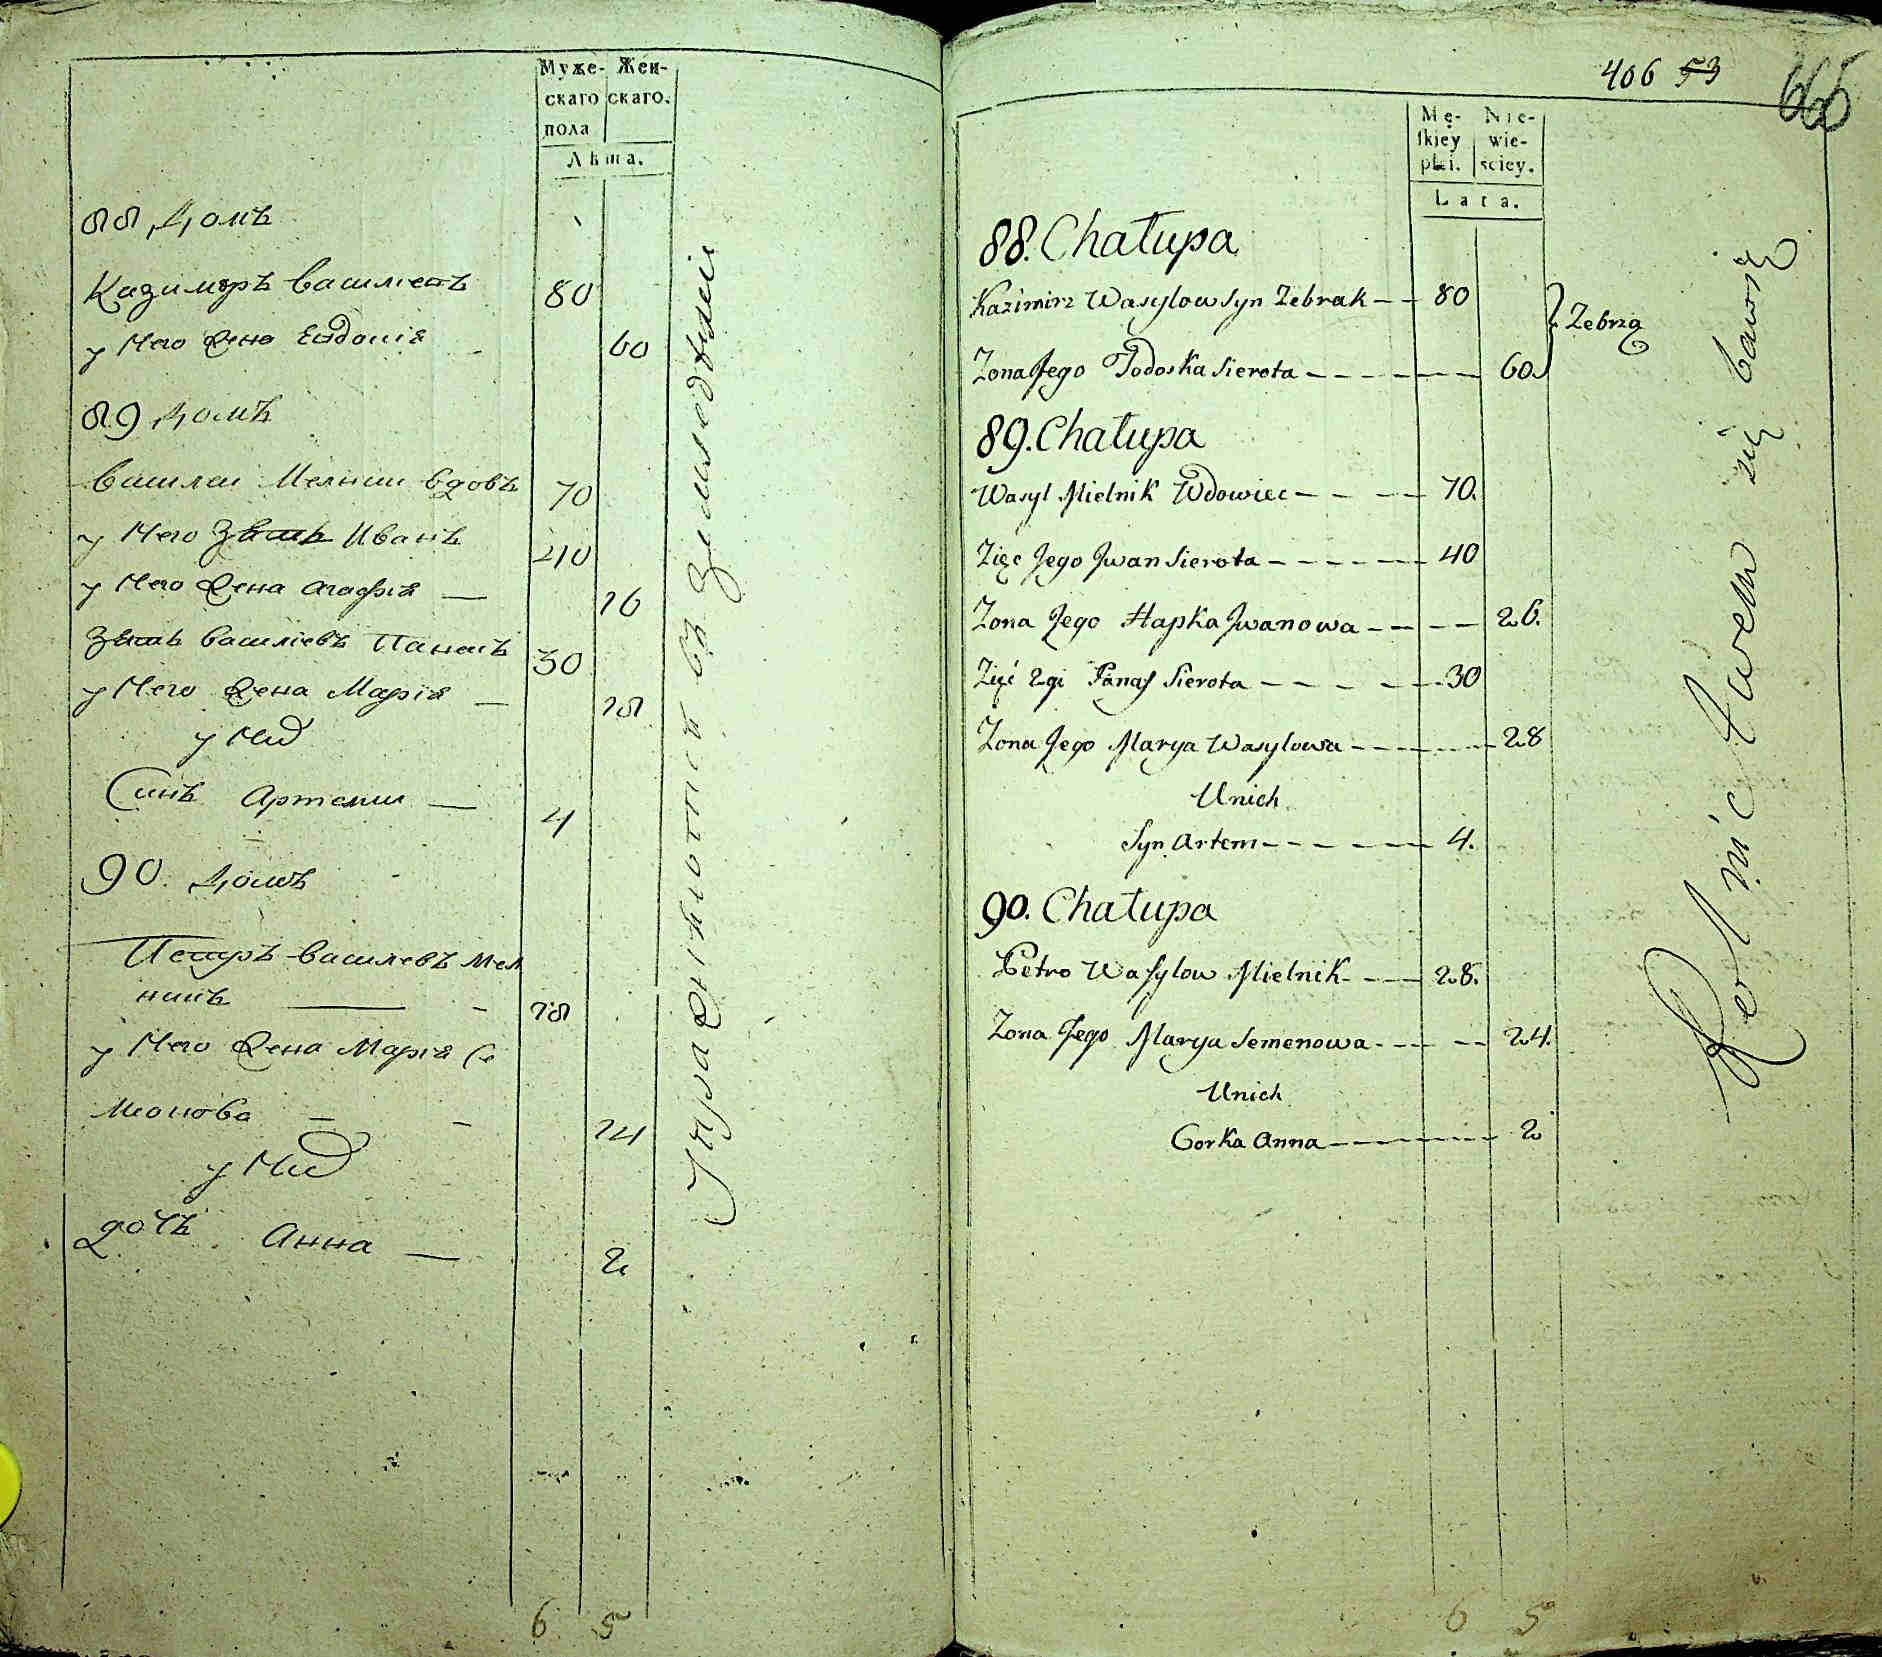 Муже- Жен-
скаго скаго.
пола
Лѣта.
88 Домъ
Казимѣръ Василіевъ 80
у Него Жена Евдокія 60
89 Домъ
Василеи Мелник вдовъ 70
у Него Зять Иванъ 40
у Него Жена Агафія — 26
Зять Василіевъ Панасъ 30
у Него Жена Марія — 28
у Них
Синъ Артеми — 4
90. Домъ
Петръ Василевъ Мел
никъ — 28
у Него Жена Марія Се
меонова — 24
у Них
дочъ Анна — 2
Упражняются въ Земледѣліи
6 5
406 53
666
Mę- Nie-
ſkiey wie-
płci. ściey.
Lata.
88. Chałupa
Kazimirz Wasylow Syn Zebrak — — 80
Zona Jego Todoska Sierota — — — — 60
Zebrzą
89. Chałupa
Wasyl Mielnik Wdowiec — — — — 70.
Zięc Jego Jwan Sierota — — — — 40
Zona Jego Hapka Jwanowa — — — — 26.
Zięć 2gi Panaſ Sierota — — — — 30
Zona Jego Marya Wasylowa — — — — 28
Unich
Syn Artem — — — — 4.
90. Chałupa
Petro Waſylow Mielnik — — — 28.
Zona Jego Marya Semenowa — — — — 24.
Unich
Corka Anna — — — — 2
Rolnictwem się bawią
6 5